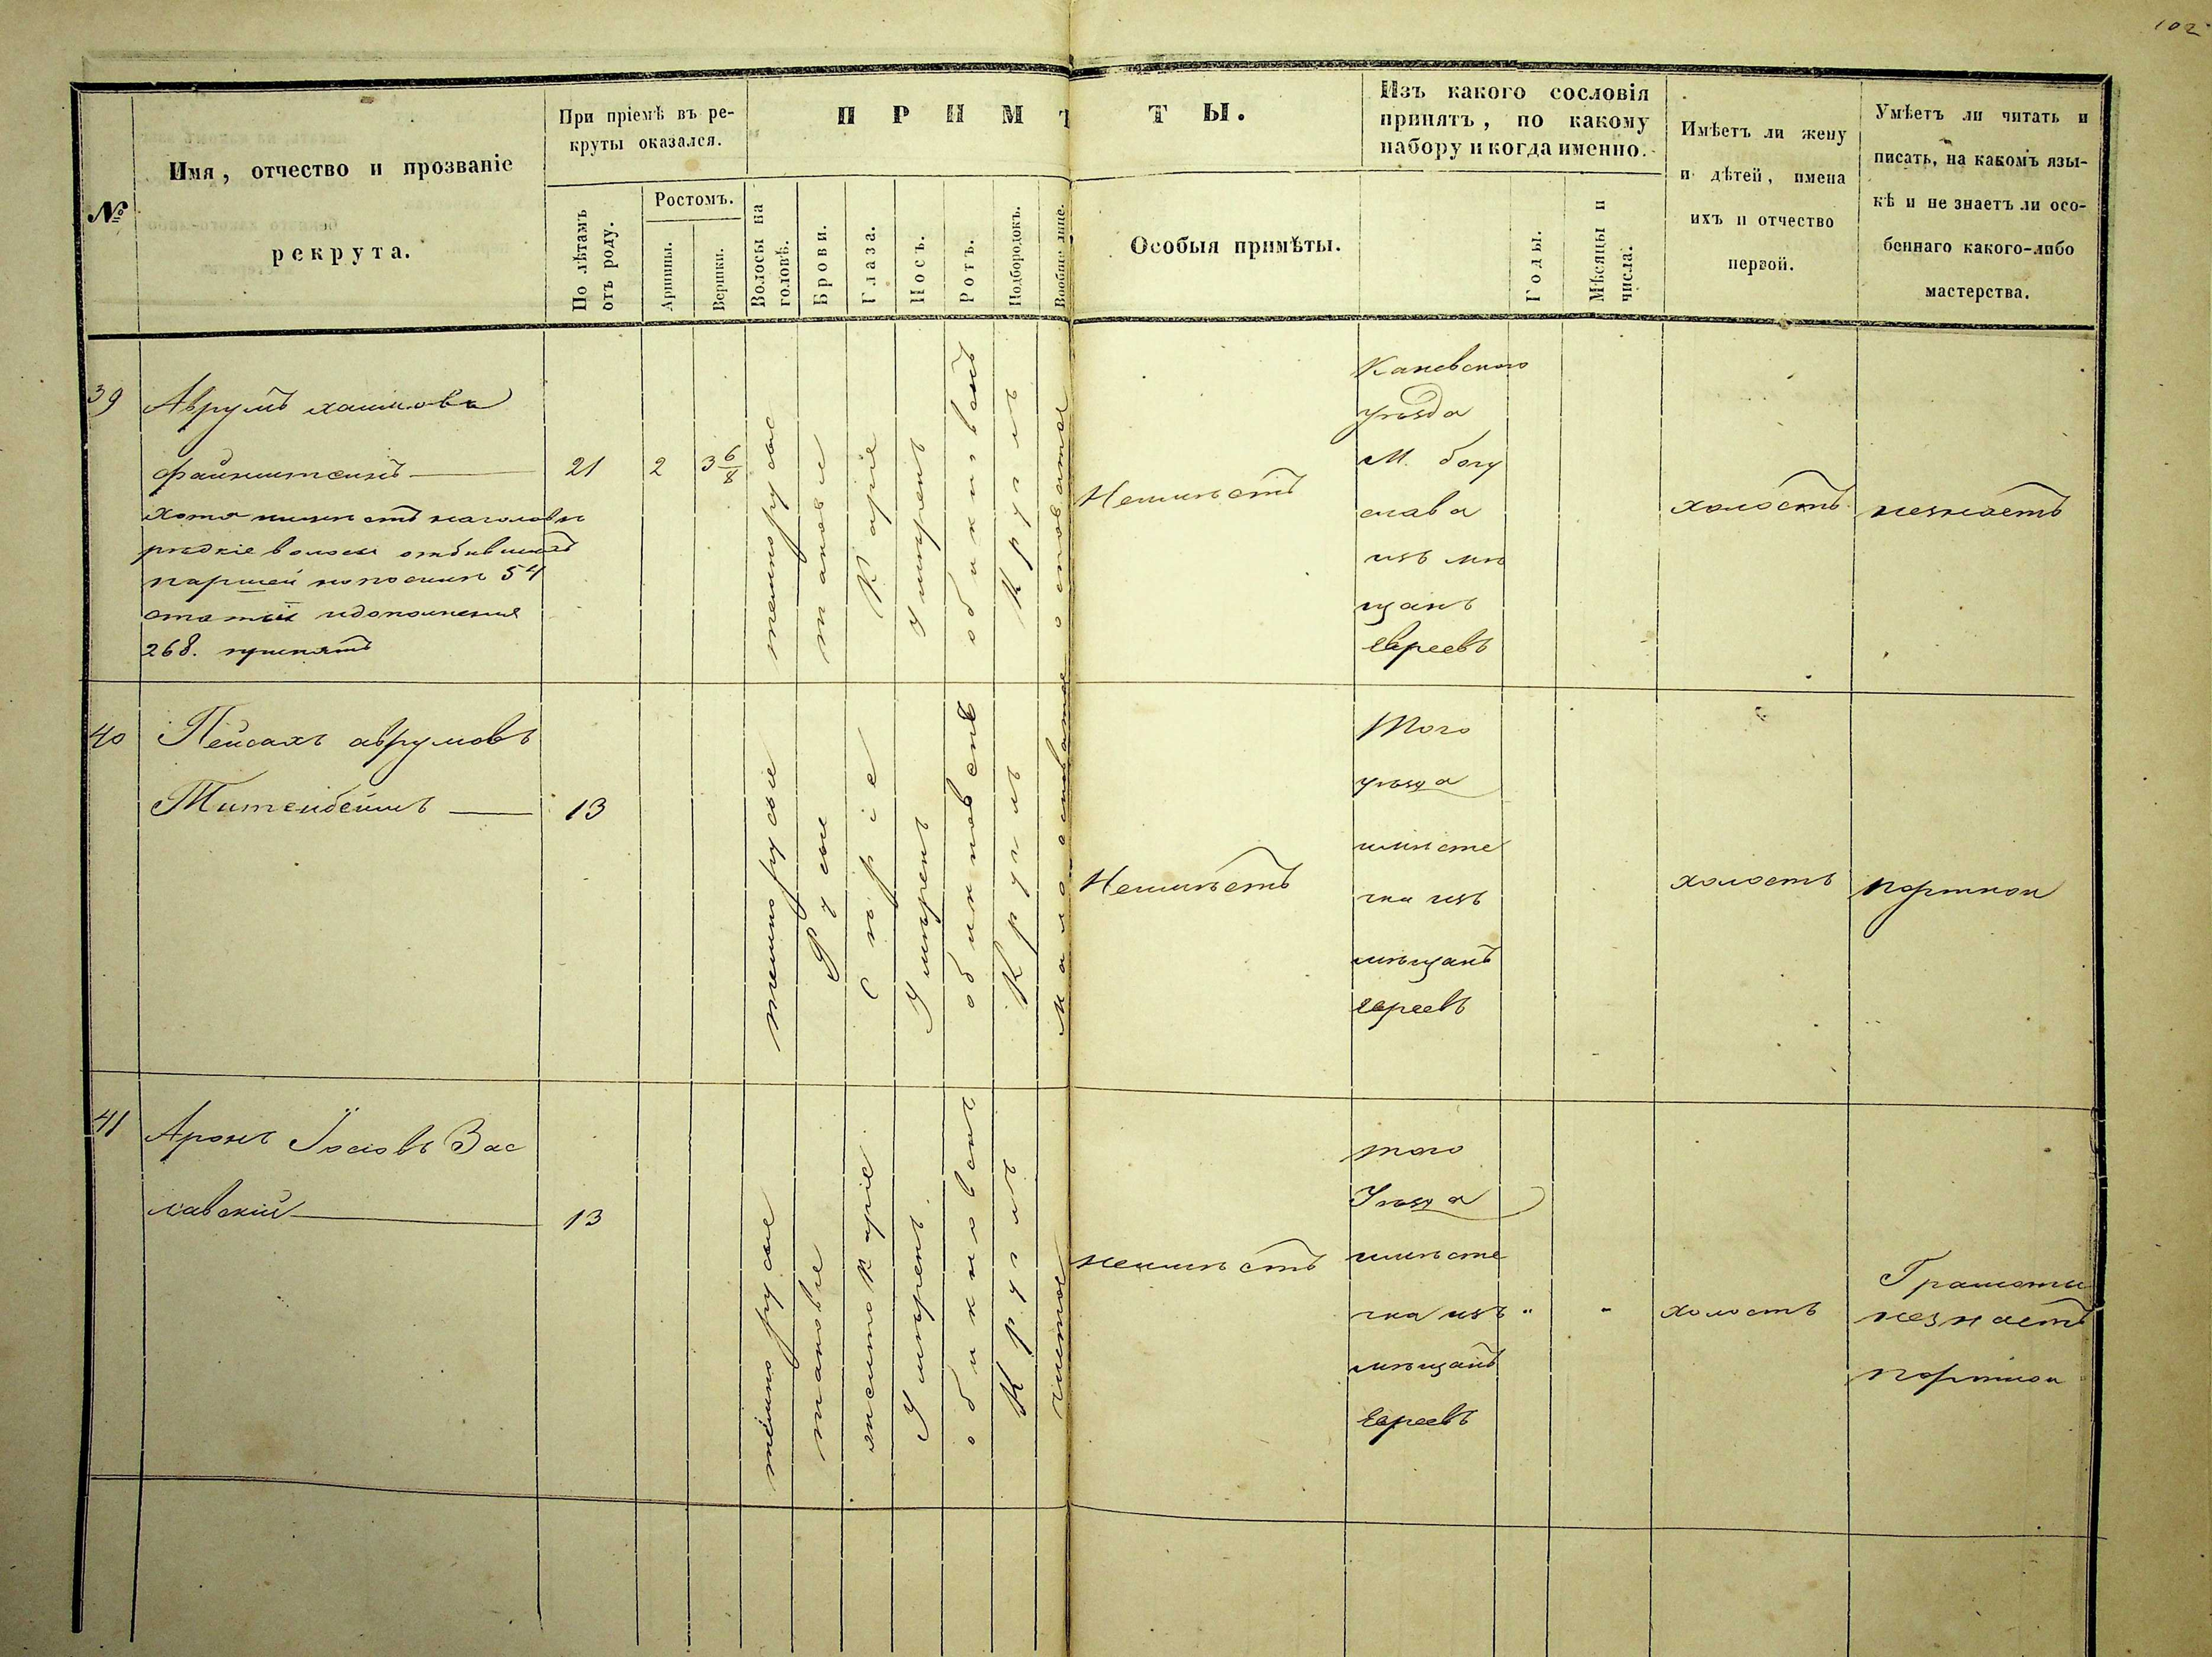 102
№
Имя, отчество и прозваніе
рекрута.
При пріемѣ въ ре-
круты оказался.
По лѣтамъ
отъ роду.
Ростомъ.
Аршины.
Вершки.
ПРИМѢТЫ.
Волосы на
головѣ.
Брови.
Глаза.
Носъ.
Ротъ.
Подбородокъ.
Вообще лице.
Особыя примѣты.
Изъ какого сословія
принятъ, по какому
набору и когда именно.
Годы.
Мѣсяцы и
числа.
Имѣетъ ли жену
и дѣтей, имена
ихъ и отчество
первой.
Умѣетъ ли читать и
писать, на какомъ язы-
кѣ и не знаетъ ли осо-
беннаго какого-либо
мастерства.
39
Аврумъ хаимовъ
файнштейнъ
хотя имѣетъ наголовѣ
рѣдкіе волосы отбывшей
паршей но посили 54
статьи идополненія
268. принятъ
21
2
3 6/8
темнорусые
таковые
Каріе
умѣренъ
обикновенъ
Круглъ
осповатое
Неимѣетъ
Каневского
уѣзда
М. богу
слава
изъ мѣ
щанъ
евреевъ
холостъ
незнаетъ
40
Пейсахъ аврумовъ
13
темнорусые
Русые
Сѣріе
Умѣренъ
обикновенъ
Круглъ
Мало осповатое
Неимѣетъ
Того
уѣзда
имѣсте
чка изъ
мѣщанъ
евреевъ
холостъ
портной
41
Аронъ Іосіовъ Зас
лавскій
13
тёмно русые
таковые
Умѣренъ
обикновенъ
Круглъ
чистое
неимѣетъ
того
Уѣзда
имѣсте
чка изъ
мѣщанъ
Евреевъ
"
"
холостъ
Грамоты
незнаетъ
портной